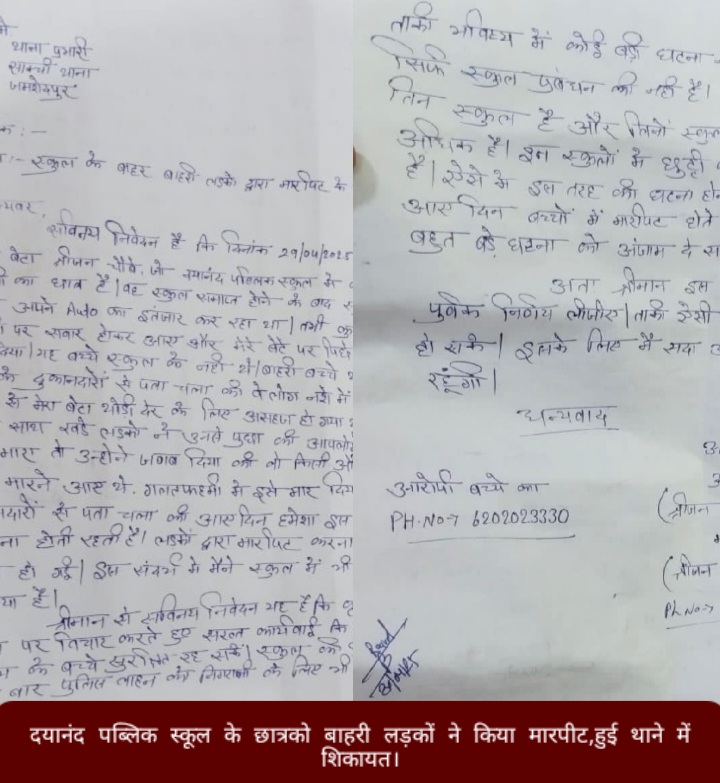 थाना प्रभारी
साक्ची थाना
जमशेदपुर
:- स्कुल के बाहर बाहरी लड़को द्वारा मारपिट के
सविनय निवेदन है कि दिनांक 29/04/2025
बेटा श्रीजन चौबे, जो दयानंद पब्लिक स्कुल में
का छात्र है। वह स्कुल समाप्त होने के बाद
अपने Auto का इंतजार कर रहा था। तभी कु
पर सवार होकर आए और मेरे बेटे पर
दिया। यह बच्चे स्कुल के नही थे। बाहरी बच्चे
के दुकानदारों से पता चला की वे लोग नशे में
से मेरा बेटा थोड़ी देर के लिए असहज हो गया
साथ खडे लड़को ने उनसे पुछा की आपलोग
मारा तो उन्होने जवाब दिया की वो किसी औ
मारने आए थे. गलतफहमी मे इसे मार दिय
से पता चला की आए दिन हमेशा इस
होती रहती है। लडकों द्वारा मारपिट करना
हो गई। इस संदर्भ मे मैंने स्कुल में भी
या है।
श्रीमान से सविनय निवेदन यह है कि
पर विचार करते हुए सरल कार्यवाई कि
के बच्चे सुरक्षित रह सके। स्कुल की
बार पुलिस वाहन की निगरानी के लिए भी
ताकी भविष्य में कोई बड़ी घटना
सिर्फ स्कुल प्रबंधन की नही है।
तिन स्कुल है और तिनों स्कुल
अधिक है। इन स्कुलों में छुट्टी
है। ऐसे मे इस तरह की घटना होन
आए दिन बच्चों में मारपीट होते
बहुत बड़े घटना को अंजाम दे स
अतः श्रीमान इस
पूर्वक निर्णय लीजीए। ताकी ऐसी
हो सके। इसके लिए मै सदा
रहूंगी।
धन्यवाद
आरोपी बच्चे का
PH.No-7 6202023330
(श्रीजन
(श्रीजन
Ph.No-7
दयानंद पब्लिक स्कूल के छात्रको बाहरी लड़कों ने किया मारपीट,हुई थाने में
शिकायत।